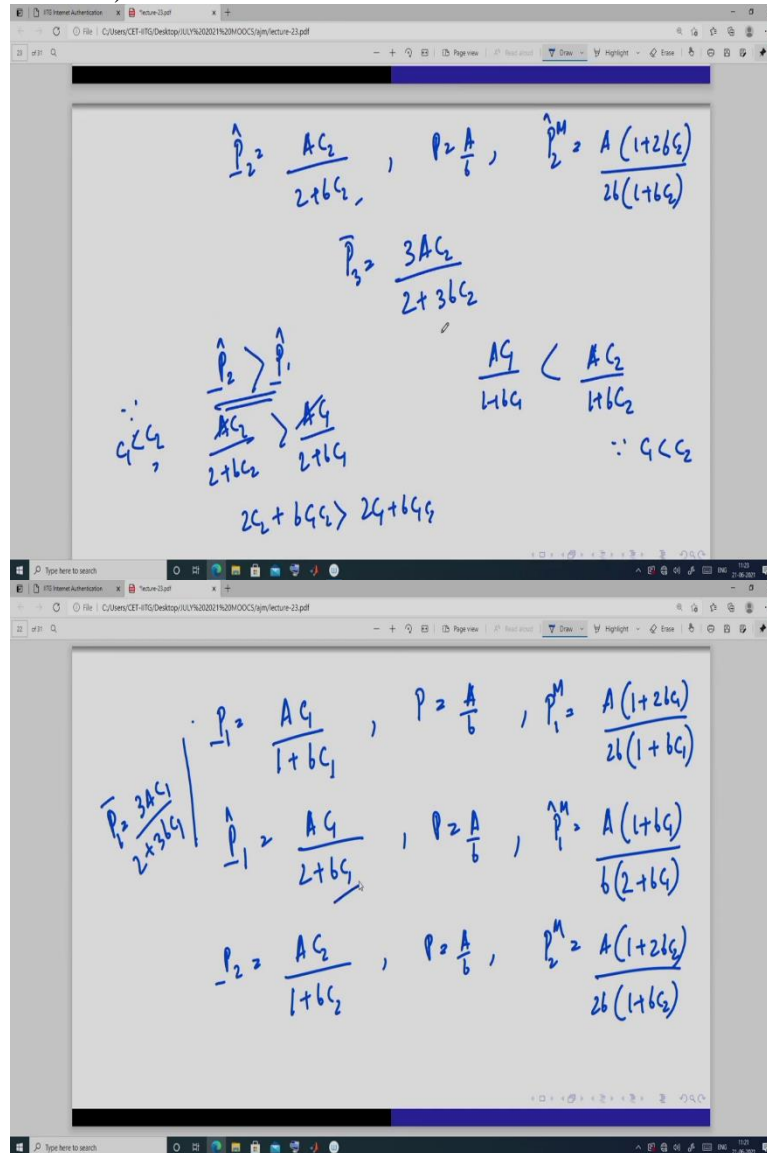 IITG Internet Authentication
*lecture-23.pdf
File | C:/Users/CET-IITG/Desktop/JULY%202021%20MOOCS/ajm/lecture-23.pdf
23 of 31
Page view | Read aloud | Draw Highlight Erase
P̂₂ = AC₂ / (2+bC₂) , P = A/b , P̂₂ᴹ = A(1+2bC₂) / 2b(1+bC₂)
P̄₃ = 3AC₂ / (2+3bC₂)
P̂₂ > P̂₁
AC₁/(1+bC₁) < AC₂/(1+bC₂)
∵ C₁<C₂, AC₂/(2+bC₂) > AC₁/(2+bC₁)
∵ C₁<C₂
2C₂ + bC₁C₂ > 2C₁ + bC₁C₂
Type here to search
ENG
11:23
21-06-2021
IITG Internet Authentication
*lecture-23.pdf
File | C:/Users/CET-IITG/Desktop/JULY%202021%20MOOCS/ajm/lecture-23.pdf
22 of 31
Page view | Read aloud | Draw Highlight Erase
P₁ = AC₁ / (1+bC₁) , P = A/b , P₁ᴹ = A(1+2bC₁) / 2b(1+bC₁)
P̄₁ = 3AC₁ / (2+3bC₁)
P̂₁ = AC₁ / (2+bC₁) , P = A/b , P̂₁ᴹ = A(1+bC₁) / b(2+bC₁)
P₂ = AC₂ / (1+bC₂) , P = A/b , P₂ᴹ = A(1+2bC₂) / 2b(1+bC₂)
Type here to search
ENG
11:21
21-06-2021